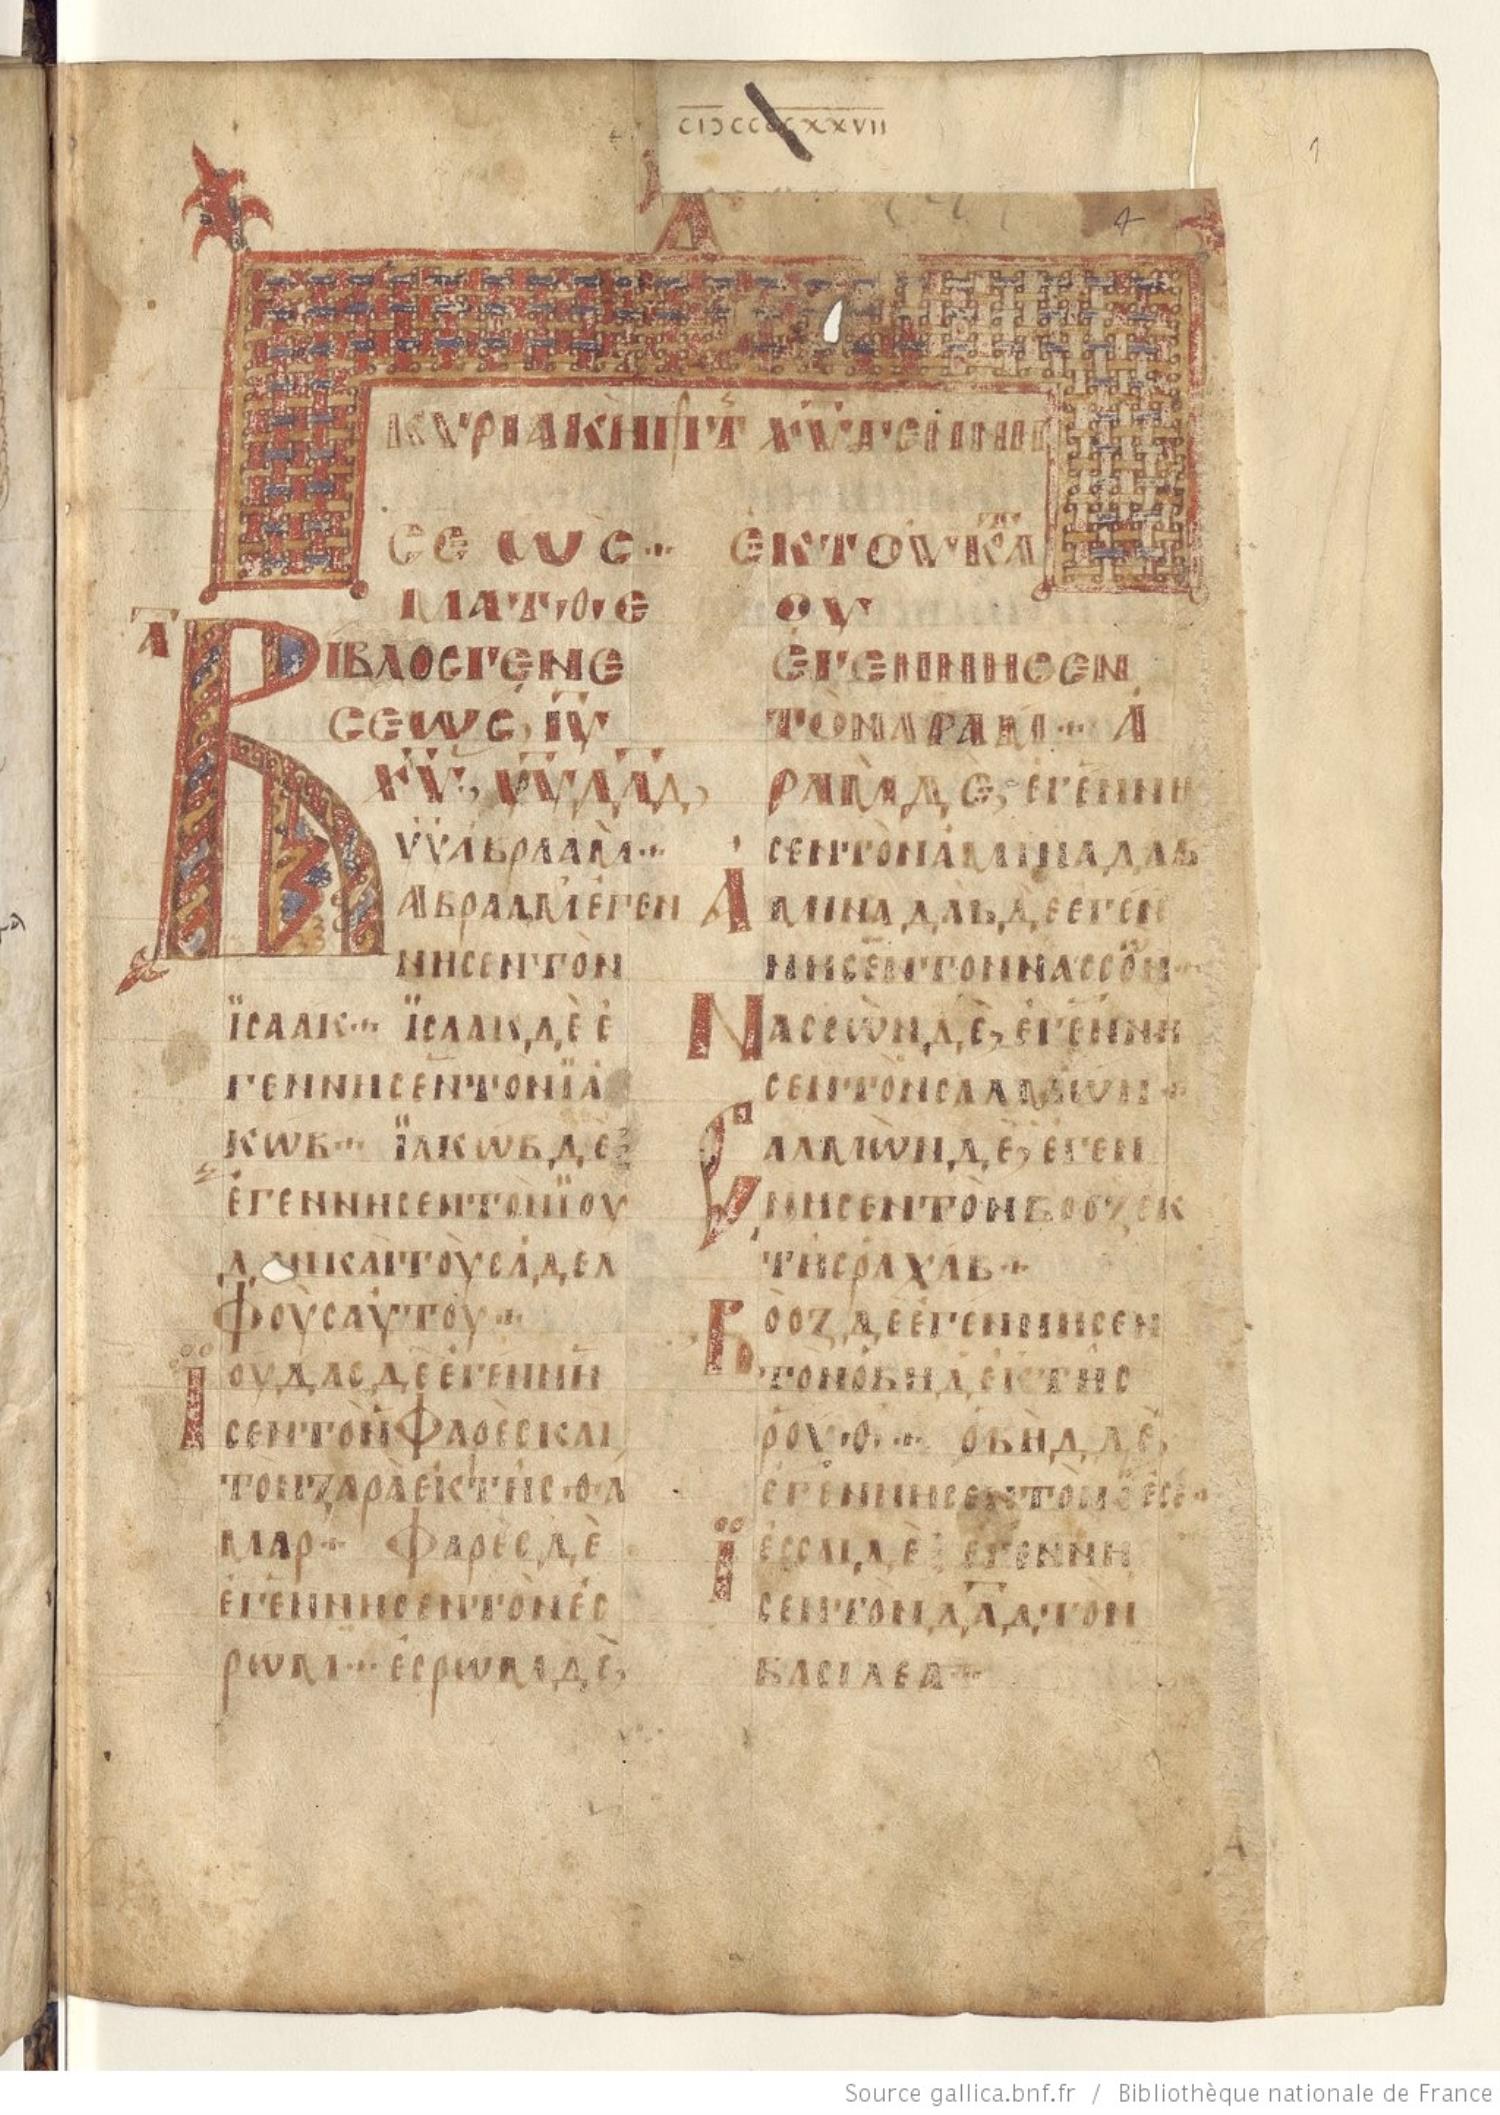 CIƆCCCCCXXVII
1
4
ΚΥΡΙΑΚΗΠΡΤ ΧΥΓΕΝΝΗ
ΣΕΩΣ·· ΕΚΤΟΥΚΑΤ
ΜΑΤΘΕ
ΒΙΒΛΟΣΓΕΝΕ
ΣΕΩΣ, ΙΥ
ΧΥ, ΥΥΔΑΔ,
ΥΥΑΒΡΑΑΜ··
ΑΒΡΑΑΜΕΓΕΝ
ΝΗΣΕΝΤΟΝ
ΪΣΑΑΚ·· ΪΣΑΑΚΔΕΕ
ΓΕΝΝΗΣΕΝΤΟΝΪΑ
ΚΩΒ·· ΪΑΚΩΒΔΕ
ΕΓΕΝΝΗΣΕΝΤΟΝΪΟΥ
ΔΑΝΚΑΙΤΟΥΣΑΔΕΛ
ΦΟΥΣΑΥΤΟΥ··
ΪΟΥΔΑΣΔΕΕΓΕΝΝΗ
ΣΕΝΤΟΝΦΑΡΕΣΚΑΙ
ΤΟΝΖΑΡΑΕΚΤΗΣΘΑ
ΜΑΡ·· ΦΑΡΕΣΔΕ
ΕΓΕΝΝΗΣΕΝΤΟΝΕΣ
ΡΩΜ·· ΕΣΡΩΜΔΕ,
ΟΥ
ΕΓΕΝΝΗΣΕΝ
ΤΟΝΑΡΑΜ·· Α
ΡΑΜΔΕ, ΕΓΕΝΝΗ
ΣΕΝΤΟΝΑΜΙΝΑΔΑΒ
ΑΜΙΝΑΔΑΒΔΕΕΓΕΝ
ΝΗΣΕΝΤΟΝΝΑΣΣΟΝ··
ΝΑΣΣΩΝΔΕ, ΕΓΕΝΝΗ
ΣΕΝΤΟΝΣΑΛΜΩΝ··
ΣΑΛΜΩΝΔΕ, ΕΓΕΝ
ΝΗΣΕΝΤΟΝΒΟΟΖΕΚ
ΤΗΣΡΑΧΑΒ··
ΒΟΟΖΔΕΕΓΕΝΝΗΣΕΝ
ΤΟΝΟΒΗΔΕΚΤΗΣ
ΡΟΥΘ·· ΟΒΗΔΔΕ,
ΕΓΕΝΝΗΣΕΝΤΟΝΪΕΣΣΑΙ··
ΪΕΣΣΑΙΔΕ, ΕΓΕΝΝΗ
ΣΕΝΤΟΝΔΑΔΤΟΝ
ΒΑΣΙΛΕΑ··
Source gallica.bnf.fr / Bibliothèque nationale de France